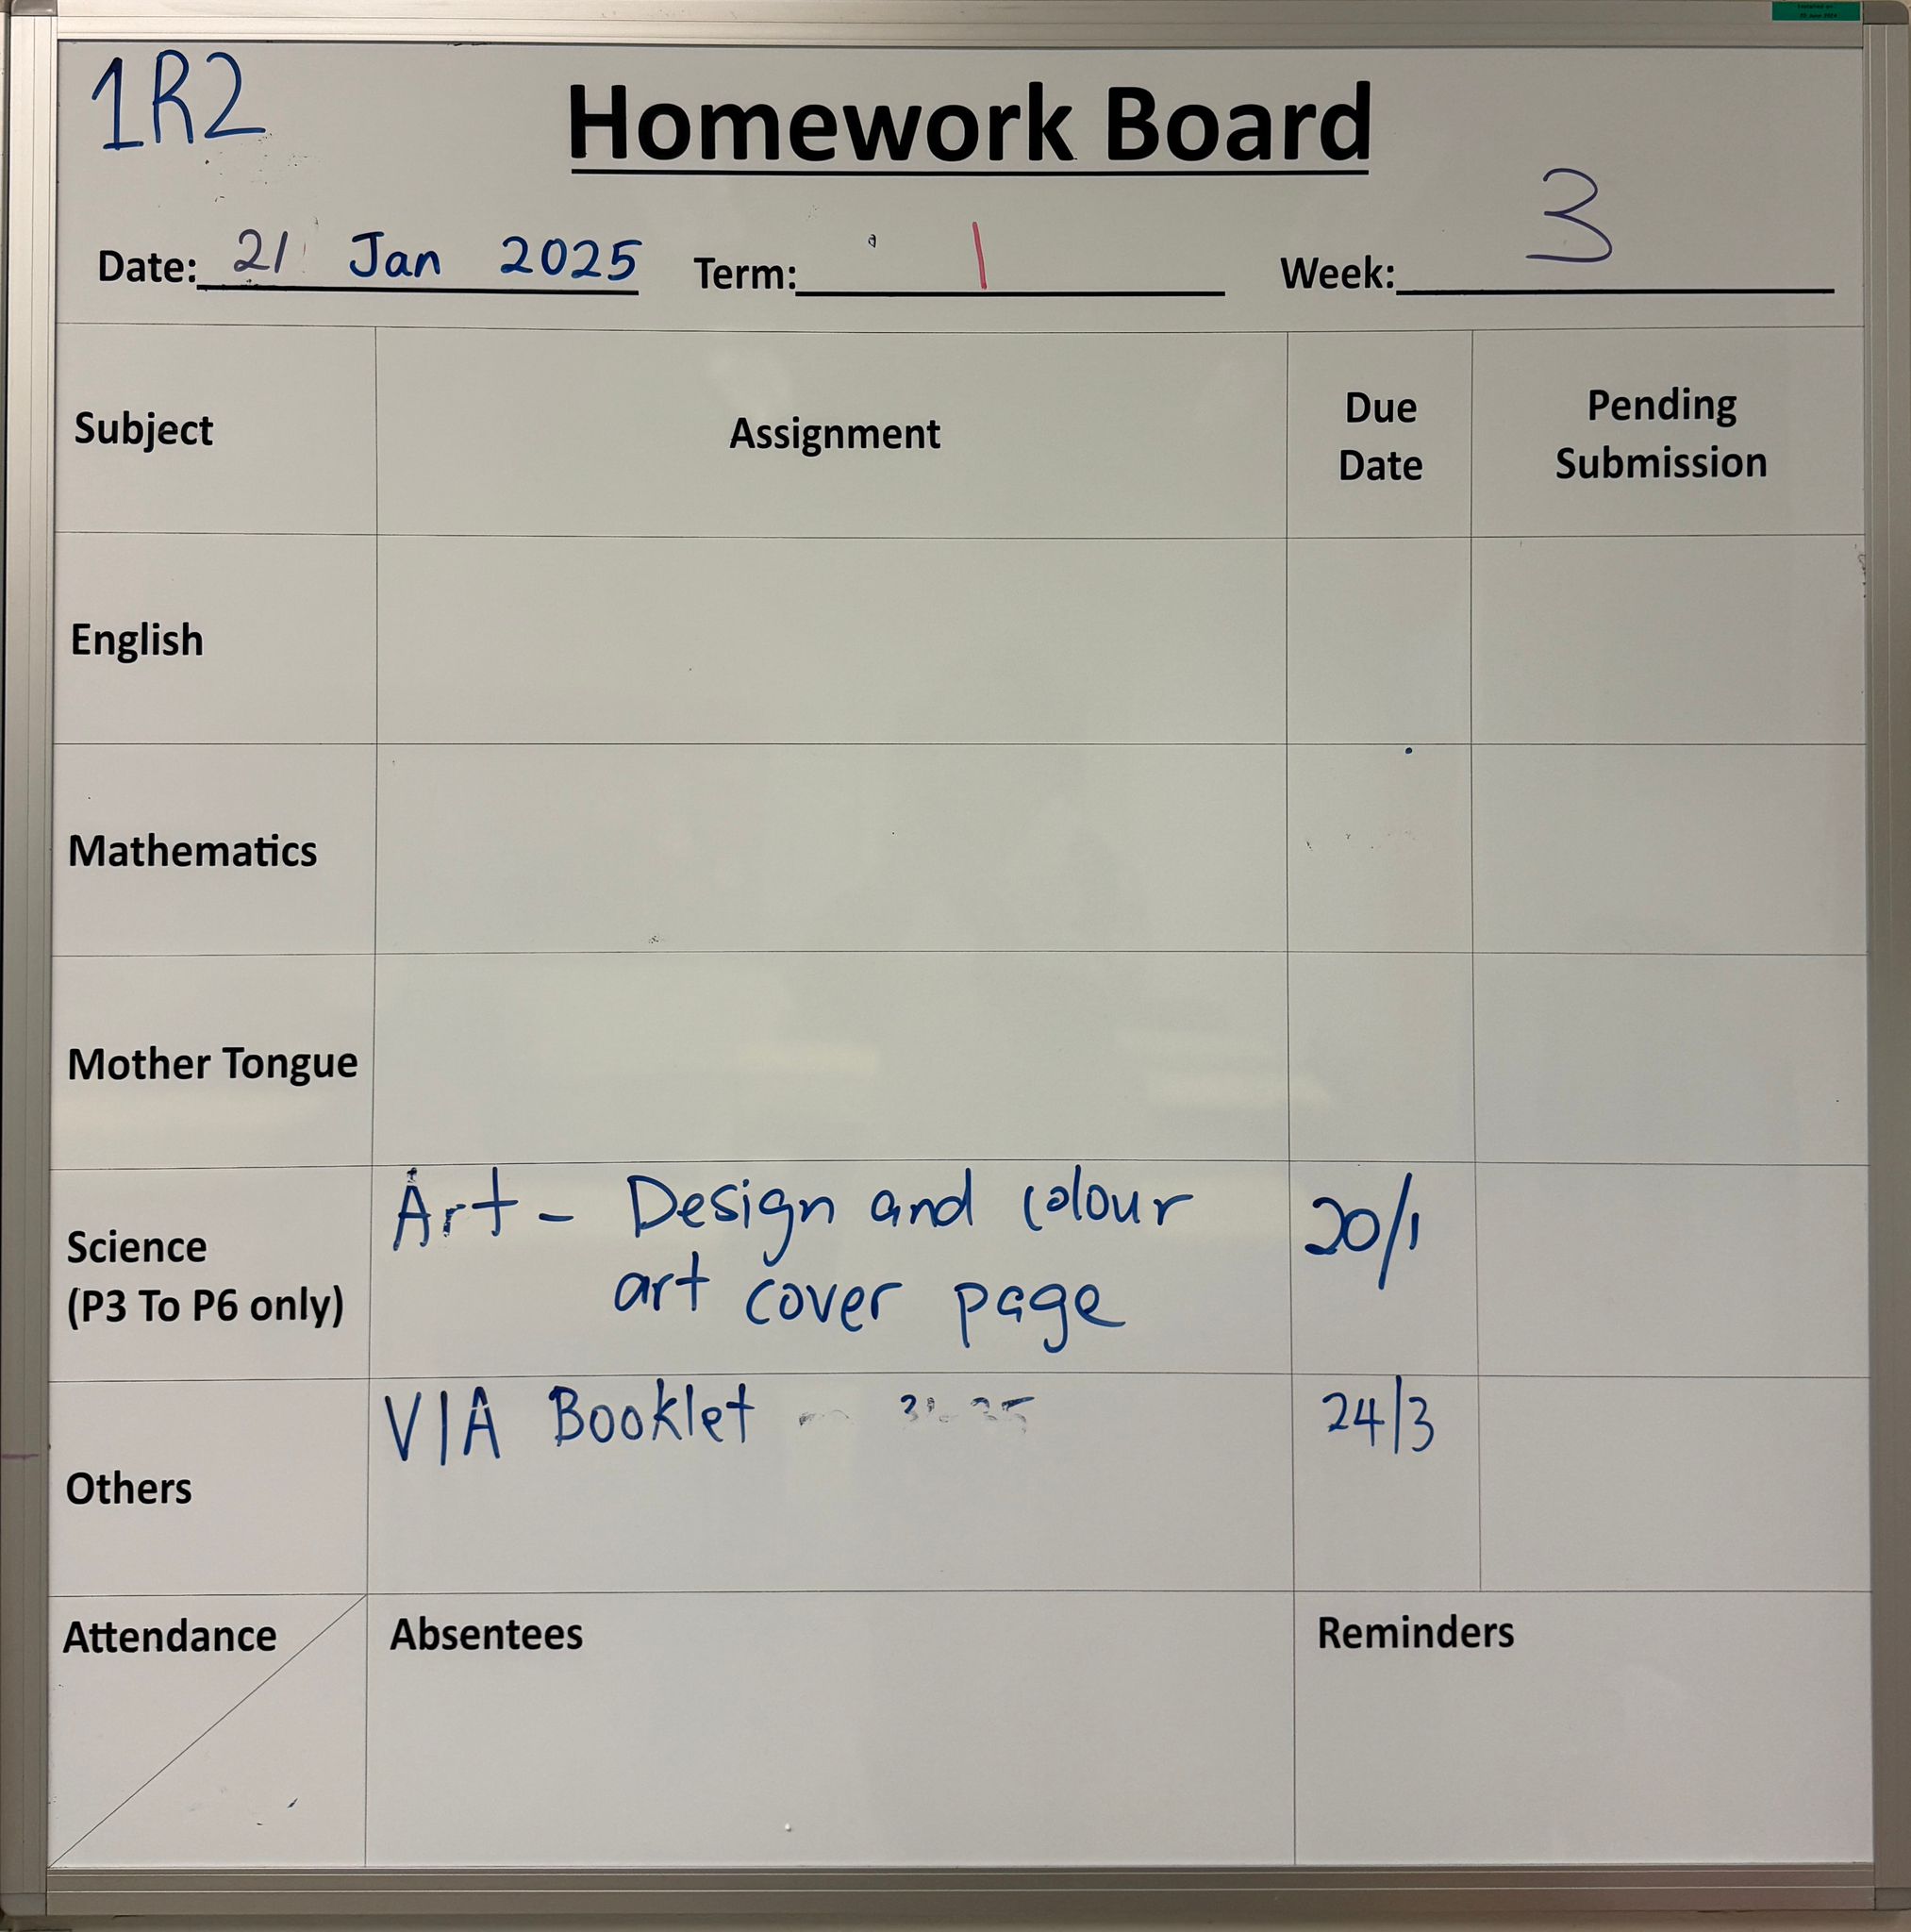 1R2
Homework Board
Date: 21 Jan 2025 Term: 1 Week: 3
Subject Assignment Due Date Pending Submission
English
Mathematics
Mother Tongue
Science
(P3 To P6 only)
Art - Design and colour
art cover page
20/1
Others
VIA Booklet
24/3
Attendance Absentees Reminders